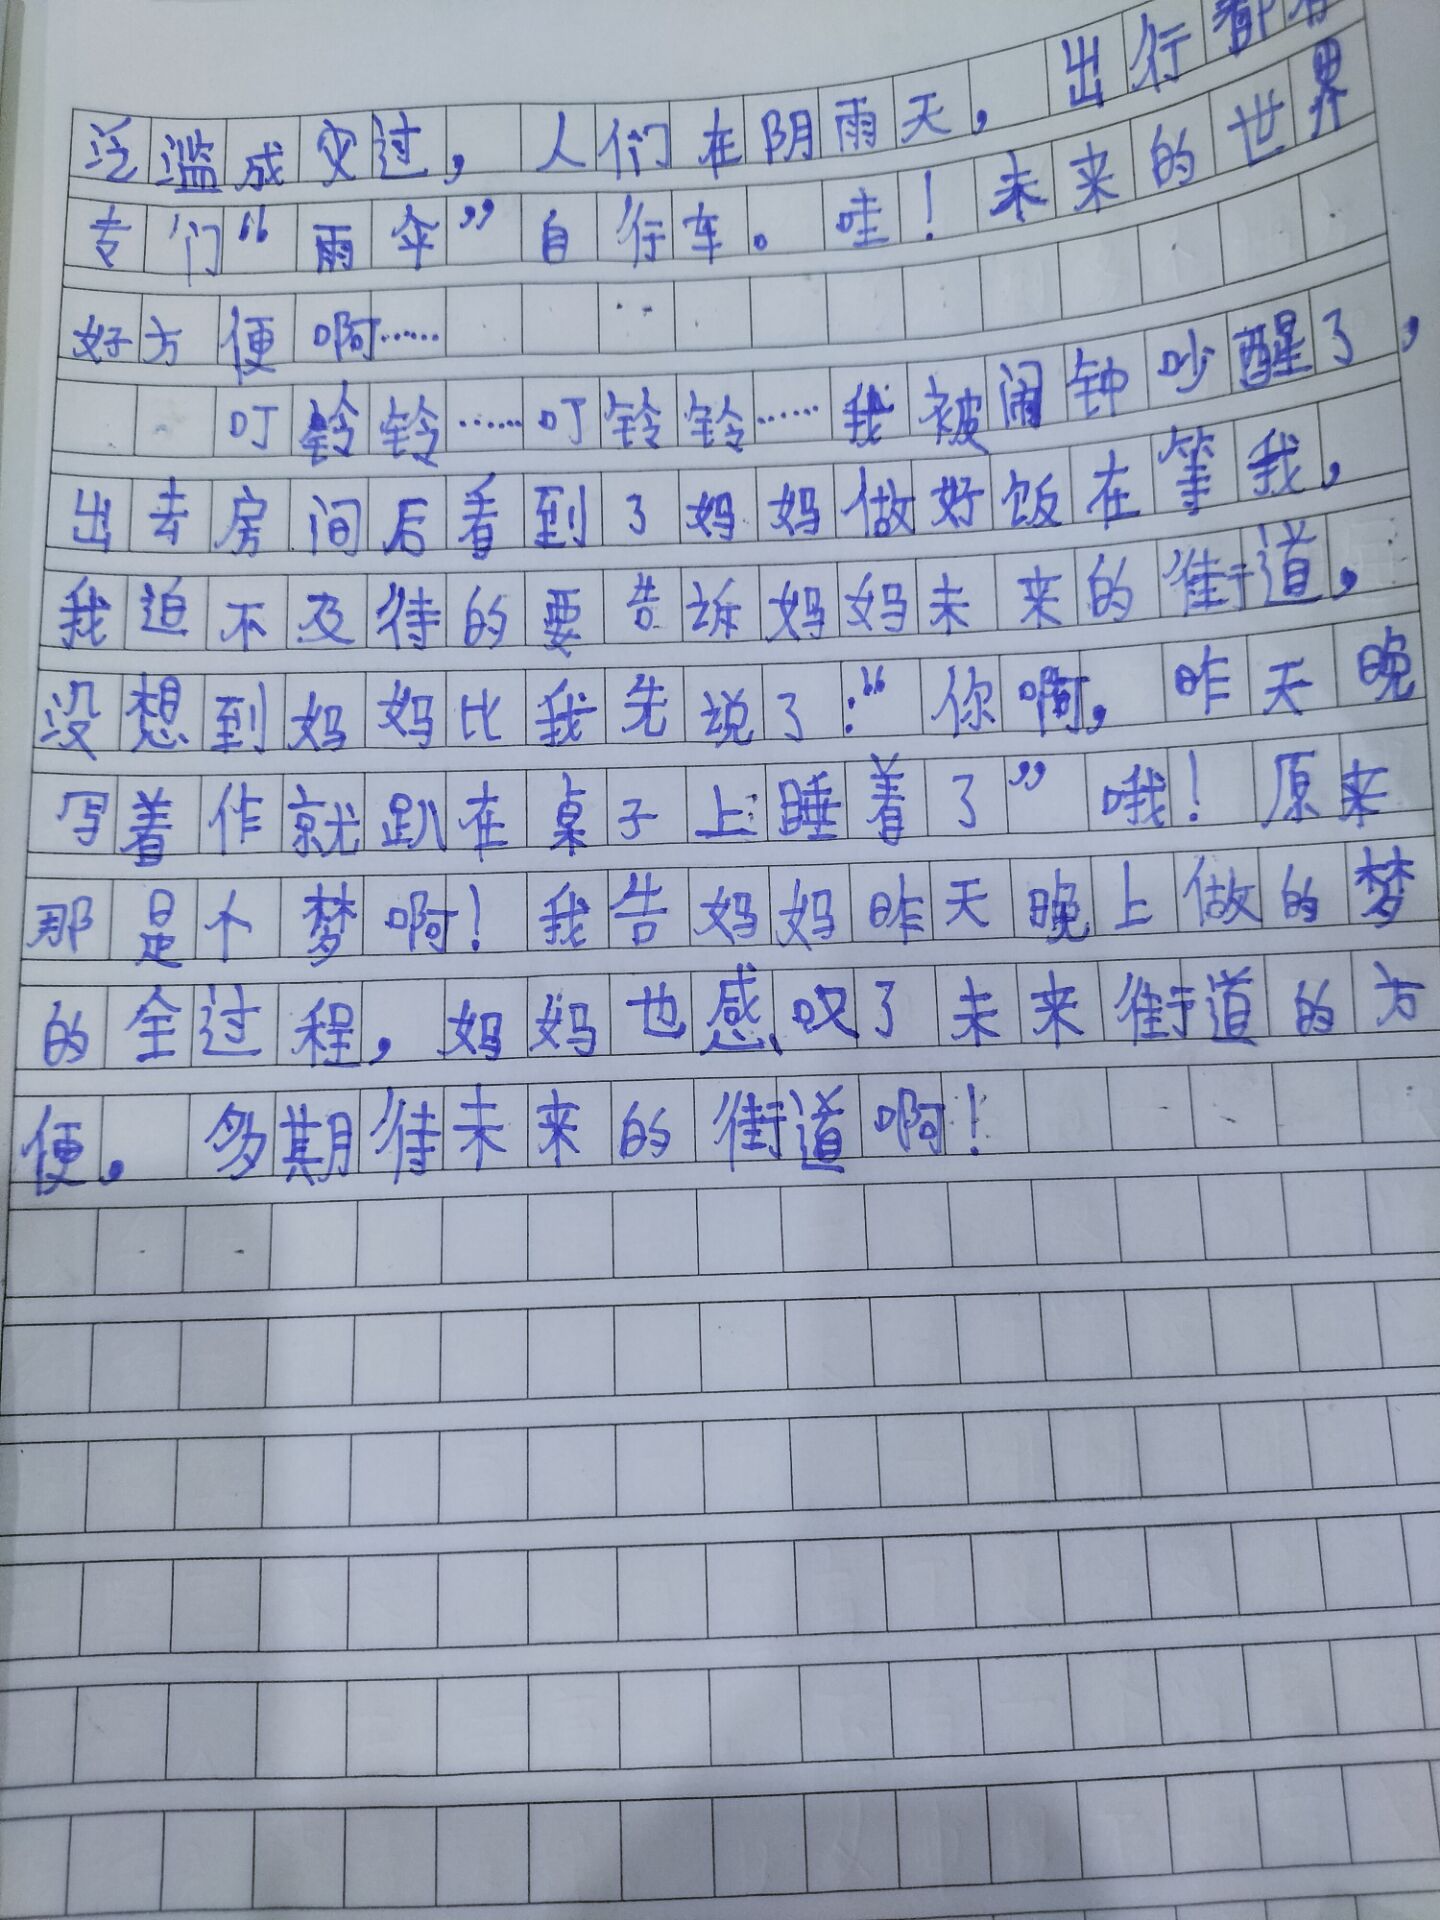 泛滥成灾过，人们在阴雨天，出行都有
专门“雨伞”自行车。哇！未来的世界
好方便啊……
叮铃铃……叮铃铃……我被闹钟吵醒了，
出去房间后看到了妈妈做好饭在等我，
我迫不及待的要告诉妈妈未来的街道，
没想到妈妈比我先说了：“你啊，昨天晚
写着作就趴在桌子上睡着了”哦！原来
那是个梦啊！我告妈妈昨天晚上做的梦
的全过程，妈妈也感叹了未来街道的方
便。多期待未来的街道啊！